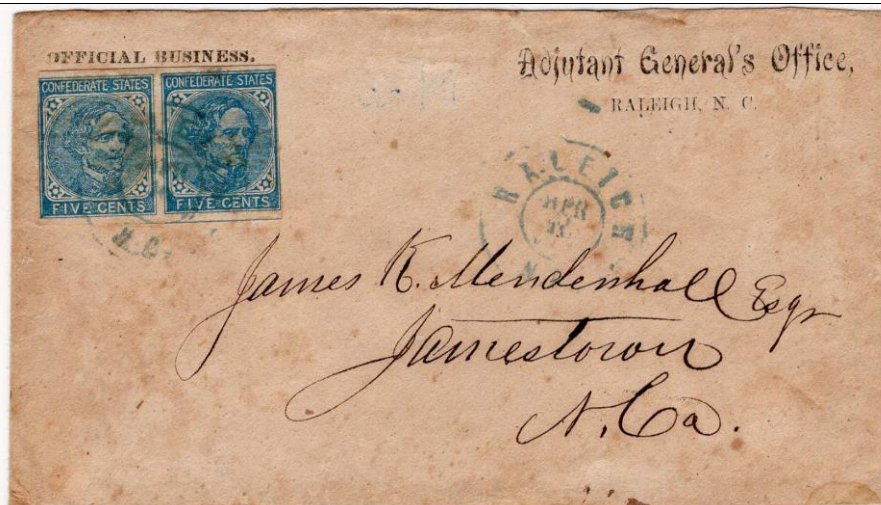 OFFICIAL BUSINESS.
Adjutant General's Office,
RALEIGH, N. C.
CONFEDERATE STATES
FIVE CENTS
CONFEDERATE STATES
FIVE CENTS
N.C.
RALEIGH
APR
James K. Mendenhall Esqr
Jamestown
N. Ca.